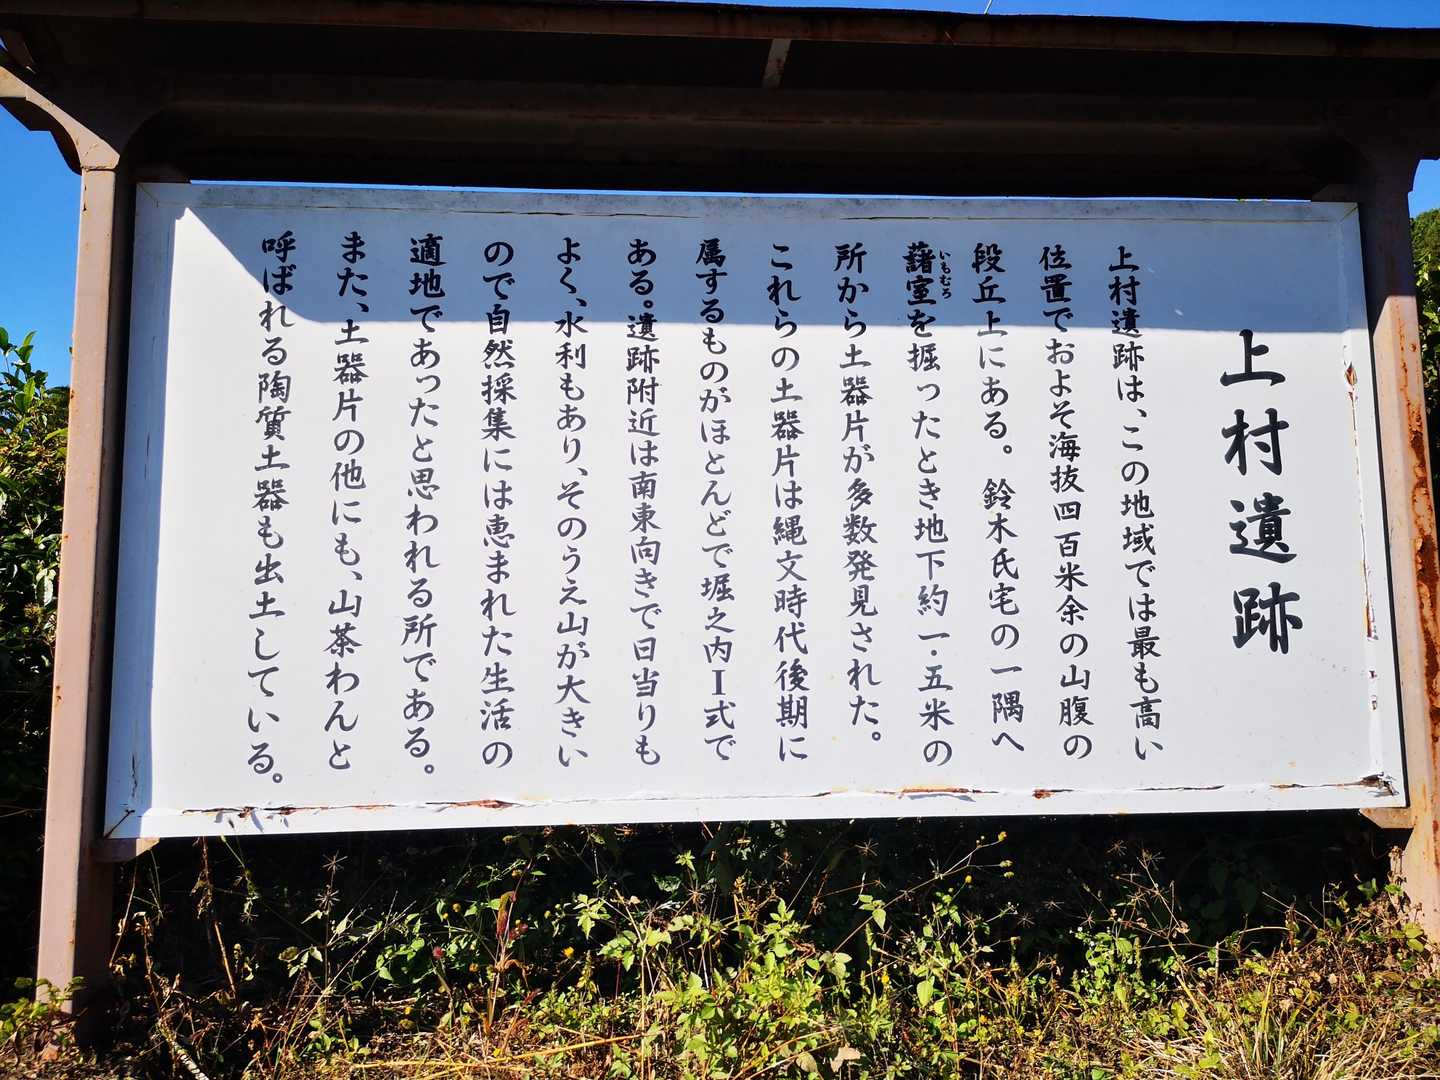 上村遺跡
上村遺跡は、この地域では最も高い
位置でおよそ海抜四百米余の山腹の
段丘上にある。鈴木氏宅の一隅へ
藷室を掘ったとき地下約一・五米の
いもむろ
所から土器片が多数発見された。
これらの土器片は縄文時代後期に
属するものがほとんどで堀之内I式で
ある。遺跡附近は南東向きで日当りも
よく、水利もあり、そのうえ山が大きい
ので自然採集には恵まれた生活の
適地であったと思われる所である。
また、土器片の他にも、山茶わんと
呼ばれる陶質土器も出土している。